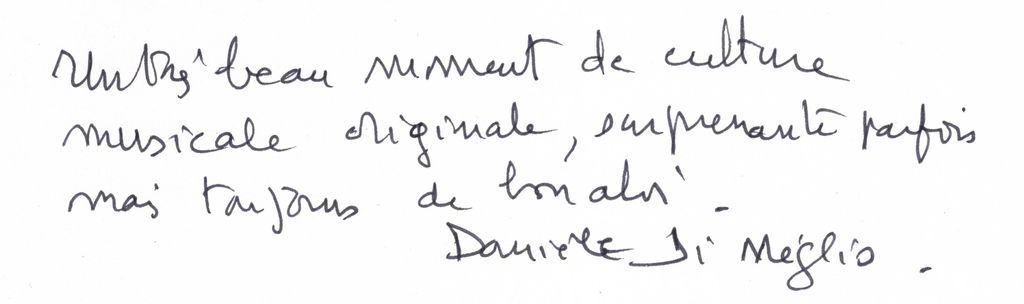 Un très beau moment de culture
musicale originale, surprenante parfois
mais toujours de bon aloi.
Danièle Di Méglio.